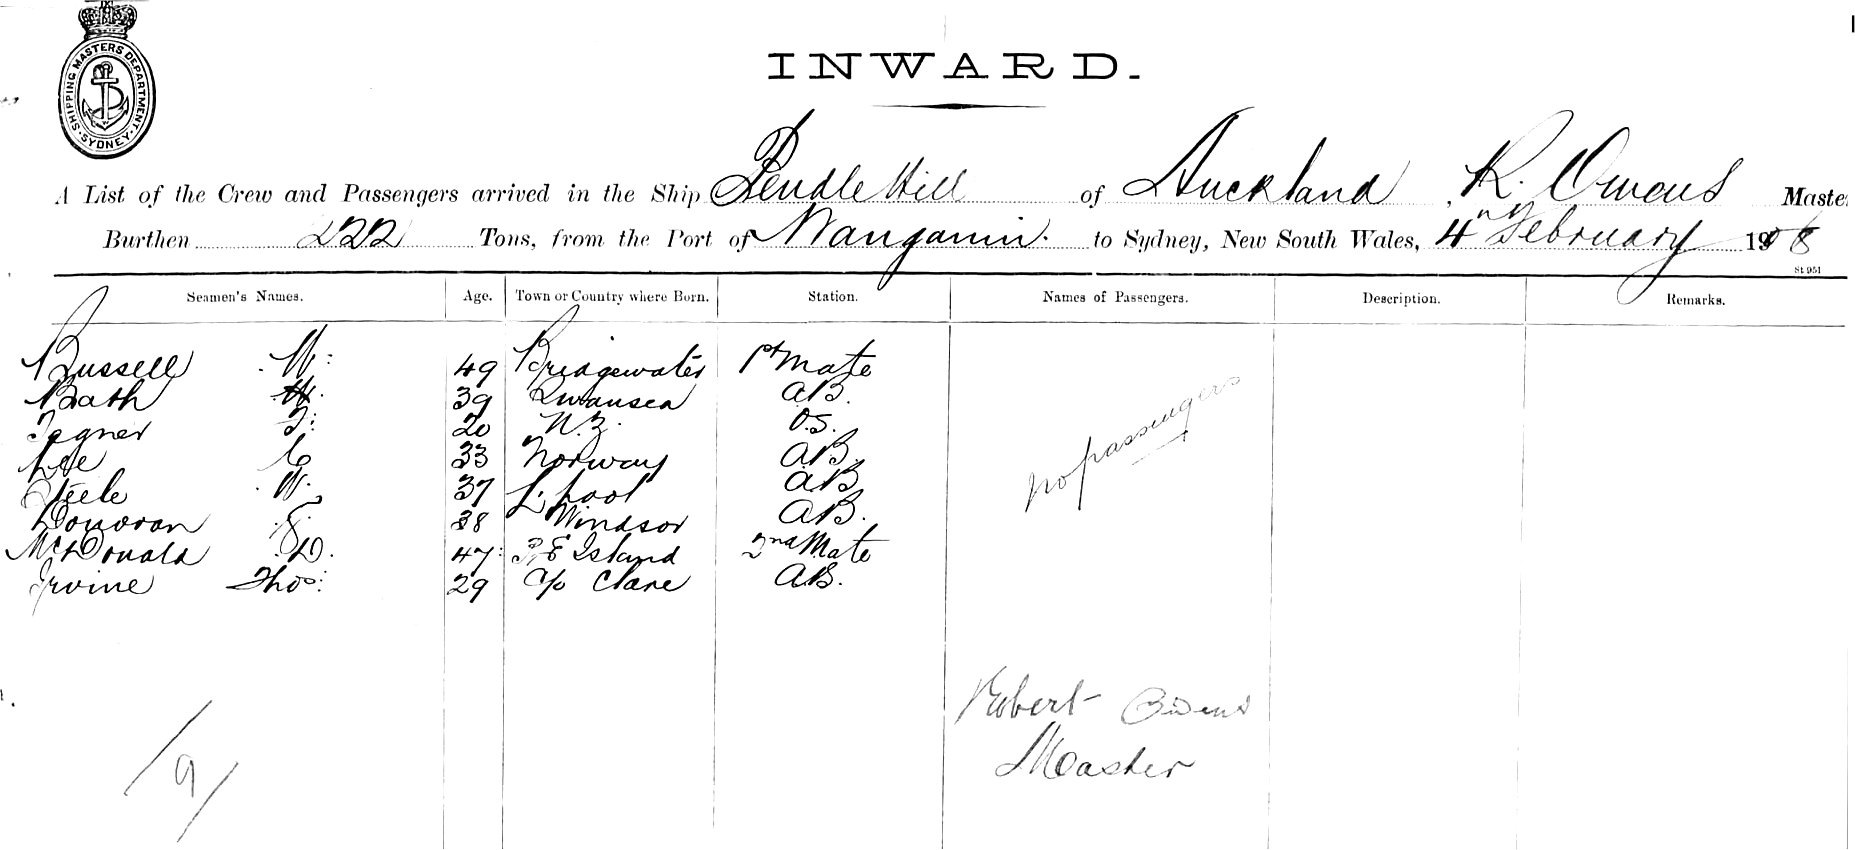 SHIPPING MASTERS DEPARTMENT
SYDNEY
INWARD.
A List of the Crew and Passengers arrived in the Ship Pendle Hill of Auckland, R. Owens Maste
Burthen 222 Tons, from the Port of Wanganui. to Sydney, New South Wales, 4 February 1908
St 951
Seamen's Names. Age. Town or Country where Born. Station. Names of Passengers. Description. Remarks.
Russell W: 49 Bridgewater 1st Mate
Bath W. 39 Swansea AB.
Tagner F: 20 N.Z. O.S.
Lee C 33 Norway AB.
Steele W. 37 L'pool AB
Donovan 38 Windsor AB.
McDonald D. 47: P E Island 2nd Mate
Irvine Thos: 29 C/o Clare AB.
no passengers
Robert Owens
Master
/9/